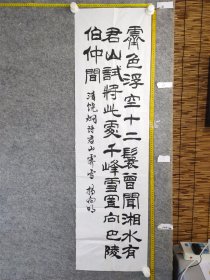 霽色浮空十二鬟曾聞湘水有
君山試將此處千峰雪置向巴陵
伯仲間
清饶炯诗君山霽雪